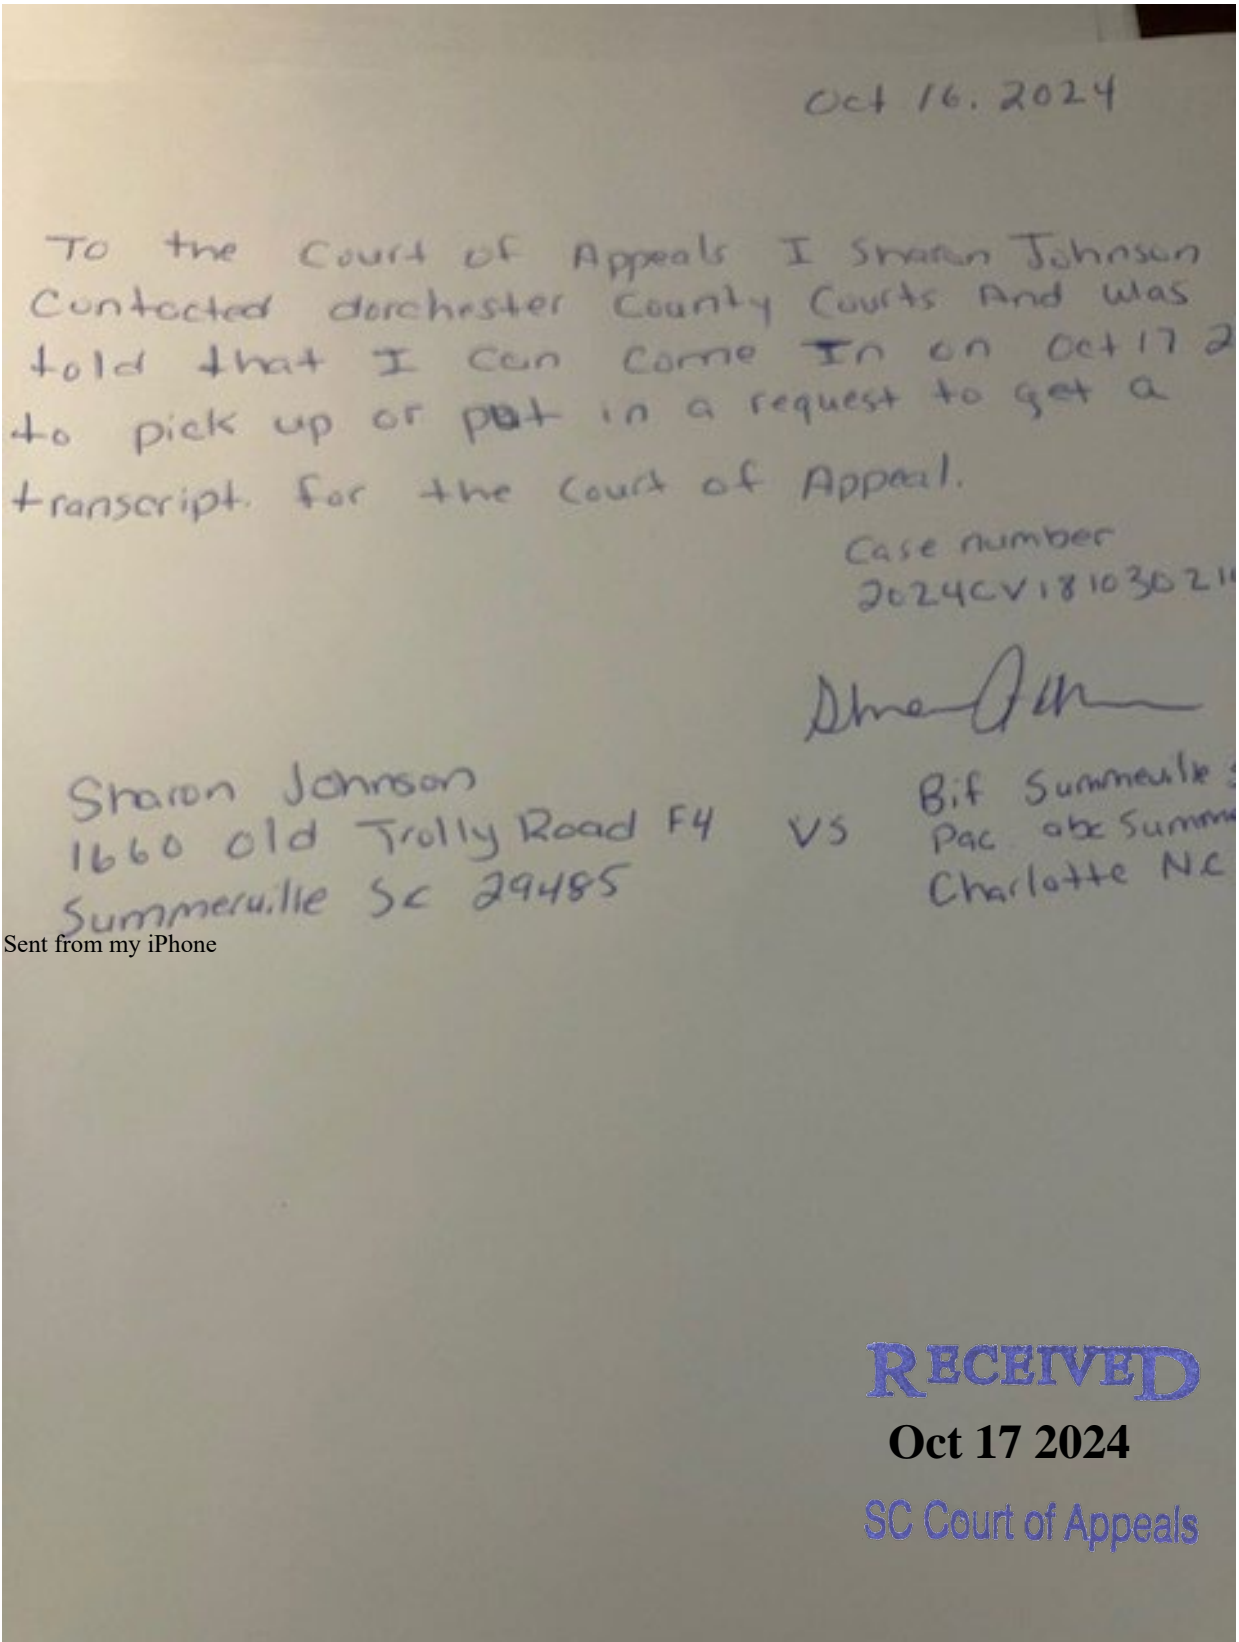 Oct 16. 2024
To the Court of Appeals I Sharon Johnson
Contacted dorchester County Courts And was
told that I can come In on Oct 17 2
to pick up or put in a request to get a
transcript. for the Court of Appeal.
Case number
2024CV18103021
Sharon Johnson
1660 Old Trolly Road F4
Summerville Sc 29485
VS
Bif Summeville
Pac abc Summe
Charlotte NC
Sent from my iPhone
RECEIVED
Oct 17 2024
SC Court of Appeals